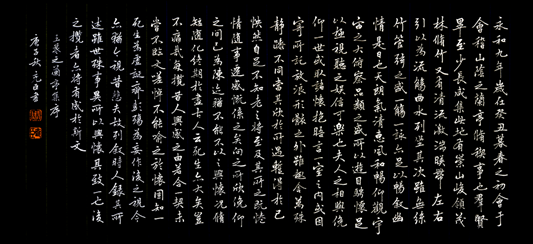 永和九年歲在癸丑暮春之初會于
會稽山陰之蘭亭脩稧事也羣賢
畢至少長咸集此地有崇山峻領茂
林脩竹又有清流激湍映帶左右
引以為流觴曲水列坐其次雖無絲
竹管弦之盛一觴一詠亦足以暢叙幽
情是日也天朗氣清惠風和暢仰觀宇
宙之大俯察品類之盛所以遊目騁懷足
以極視聽之娛信可樂也夫人之相與俯
仰一世或取諸懷抱晤言一室之內或因
寄所託放浪形骸之外雖趣舍萬殊
靜躁不同當其欣於所遇暫得於己
怏然自足不知老之將至及其所之既惓
情隨事遷感慨係之矣向之所欣俛仰
之間已為陳迹猶不能不以之興懷況脩
短隨化終期於盡古人云死生亦大矣豈
不痛哉每攬昔人興感之由若合一契未
嘗不臨文嗟悼不能喻之於懷固知一
死生為虛誕齊彭殤為妄作後之視今
亦猶今之視昔悲夫故列叙時人錄其所
述雖世殊事異所以興懷其致一也後
之攬者亦將有感於斯文
王羲之蘭亭集序
庚子秋元白書